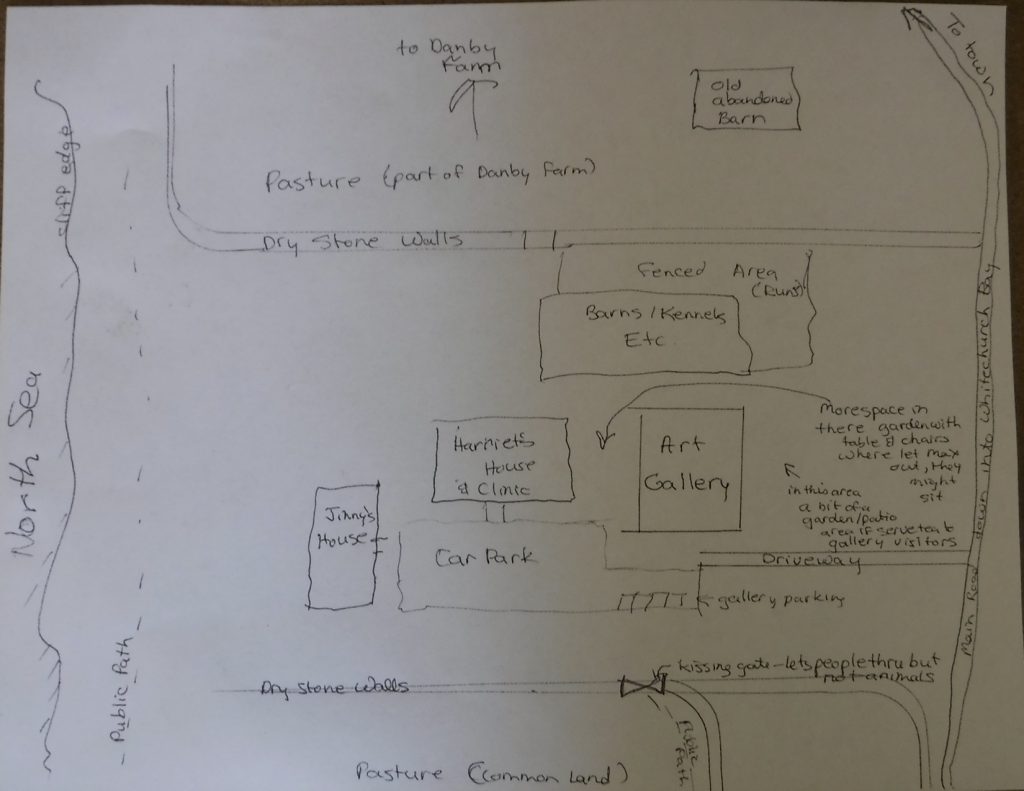 to Danby
Farm
To town
Old
abandoned
Barn
cliff edge
Pasture (part of Danby Farm)
Dry Stone Walls
Fenced Area
(Runs)
Barns/Kennels
Etc.
North Sea
Harriet's
House
& Clinic
Art
Gallery
More space in
there garden with
table & chairs
where let max
out, they
might
sit
in this area
a bit of a
garden/patio
area if serve tea to
gallery visitors
Jinny's
House
Car Park
Driveway
gallery parking
Main Road down into Whitechurch Bay
Public Path
Dry Stone Walls
kissing gate - lets people thru but
not animals
Public
Path
Pasture (common land)